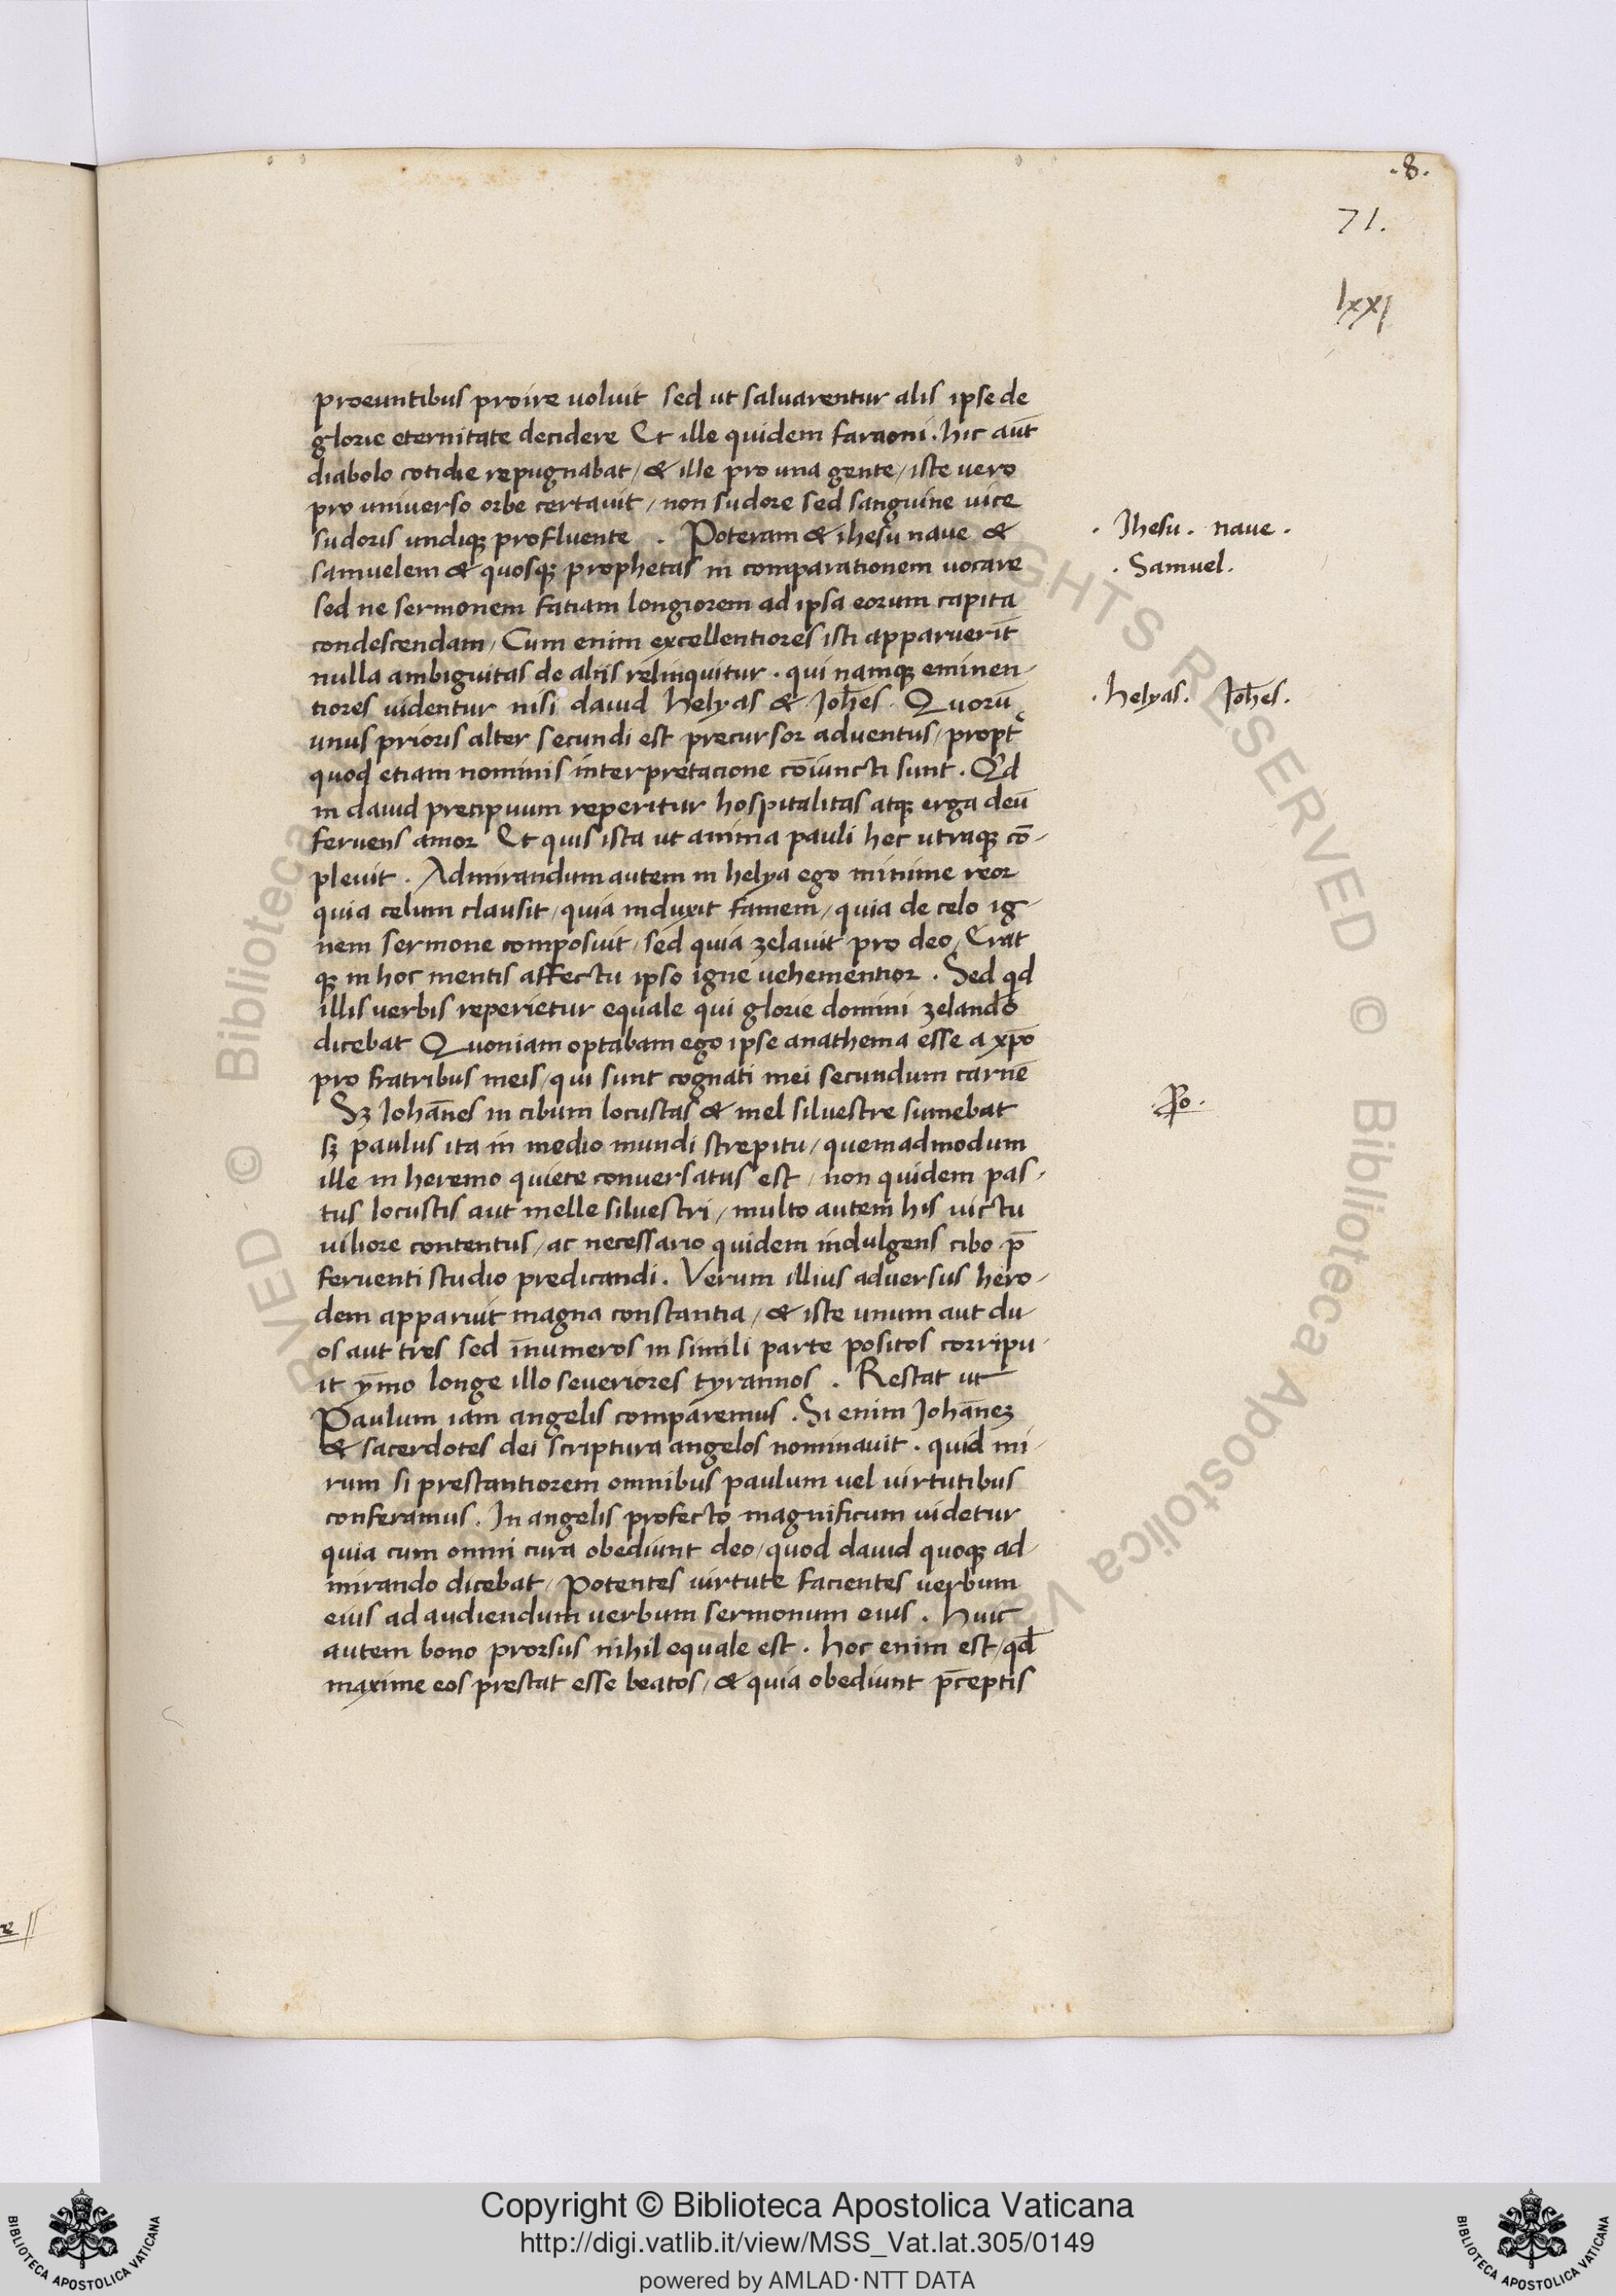 .8.
71.
lxxj
proeuntibus proire uoluit sed ut saluarentur alis ipse de
glorie eternitate decidere Et ille quidem faraoni . hic aūt
diabolo cotidie repugnabat / & ille pro una gente / iste uero
pro universo orbe certavit / non sudore sed sanguine vice
sudoris undiqꝫ profluente . Poteram & ihesu naue &
. Jhesu . naue .
samuelem & quosqꝫ prophetas in comparationem uocare
. Samuel .
sed ne sermonem fatiam longiorem ad ipsa eorum capita
condescendam / Cum enim excellentiores isti apparuerīt
nulla ambiguitas de aliis relinquitur . qui namqꝫ eminen-
tiores uidentur nisi dauid helyas & Joh̄es . Quorū
. helyas . Joh̄es .
unus prioris alter secundi est precursor adventus / propt̄
quod etiam nominis interpretacione cōiuncti sunt . Qd
in dauid precipuum reperitur hospitalitas atqꝫ erga deū
feruens amor Et quis ista ut anima pauli hec utraqꝫ cō-
plevit . Admirandum autem in helya ego minime reor
quia celum clausit / quia induxit famem / quia de celo ig-
nem sermone composuit / sed quia zelauit pro deo / Erat
qꝫ in hoc mentis affectu ipso igne vehementior . Sed qd
illis verbis reperietur equale qui glorie domini zelando
dicebat Quoniam optabam ego ipse anathema esse a xp̄o
pro fratribus meis / qui sunt cognati mei secundum carnē
Sꝫ Johānes in cibum locustas & mel siluestre sumebat
sꝫ paulus ita in medio mundi strepitu / quemadmodum
ille in heremo quiete conuersatus est / non quidem pas-
tus locustis aut melle siluestri / multo autem his uictu
uiliore contentus / ac necessario quidem indulgens cibo p̄
feruenti studio predicandi . Verum illius adversus hero-
dem apparuit magna constantia / & iste unum aut du-
os aut tres sed īnumeros in simili parte positos corripu-
it ȳmo longe illo seueriores tyrannos . Restat ut
Paulum iam angelis comparemus . Si enim Johāneꝫ
& sacerdotes dei scriptura angelos nominauit . quid mi-
rum si prestantiorem omnibus paulum uel uirtutibus
conferamus . In angelis profecto magnificum uidetur
quia cum omni cura obediunt deo / quod dauid quoqꝫ ad-
mirando dicebat / Potentes uirtute facientes uerbum
eius ad audiendum uerbum sermonum eius . Huic
autem bono prorsus nihil equale est . hoc enim est / qd̄
maxime eos prestat esse beatos / & quia obediunt p̄ceptis
Copyright © Biblioteca Apostolica Vaticana
http://digi.vatlib.it/view/MSS_Vat.lat.305/0149
powered by AMLAD·NTT DATA
BIBLIOTECA APOSTOLICA VATICANA
BIBLIOTECA APOSTOLICA VATICANA